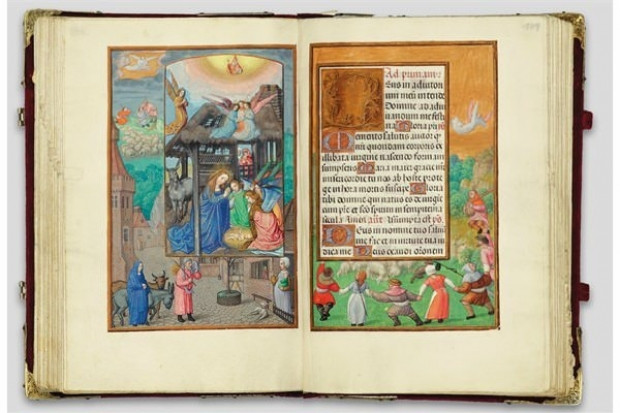 Ad primam
Deus in adiutori
um meū in tende
Domine ad adiu
uandum me festi
na Gloria pri
Memento salutis auctor q
nri quondam corporis ex
illibata uirgine nascendo formam
sumpseris Maria mater gracie mr
misericordie tu nos ab hoste prote
ge in hora mortis suscipe Gloria
tibi domine qui natus es de uirgine
cum pre et sco spiritu in sempiterna
secula
Deus in nomine tuo saluū
me fac et in uirtute tua iu
dica me Deus exaudi orationem